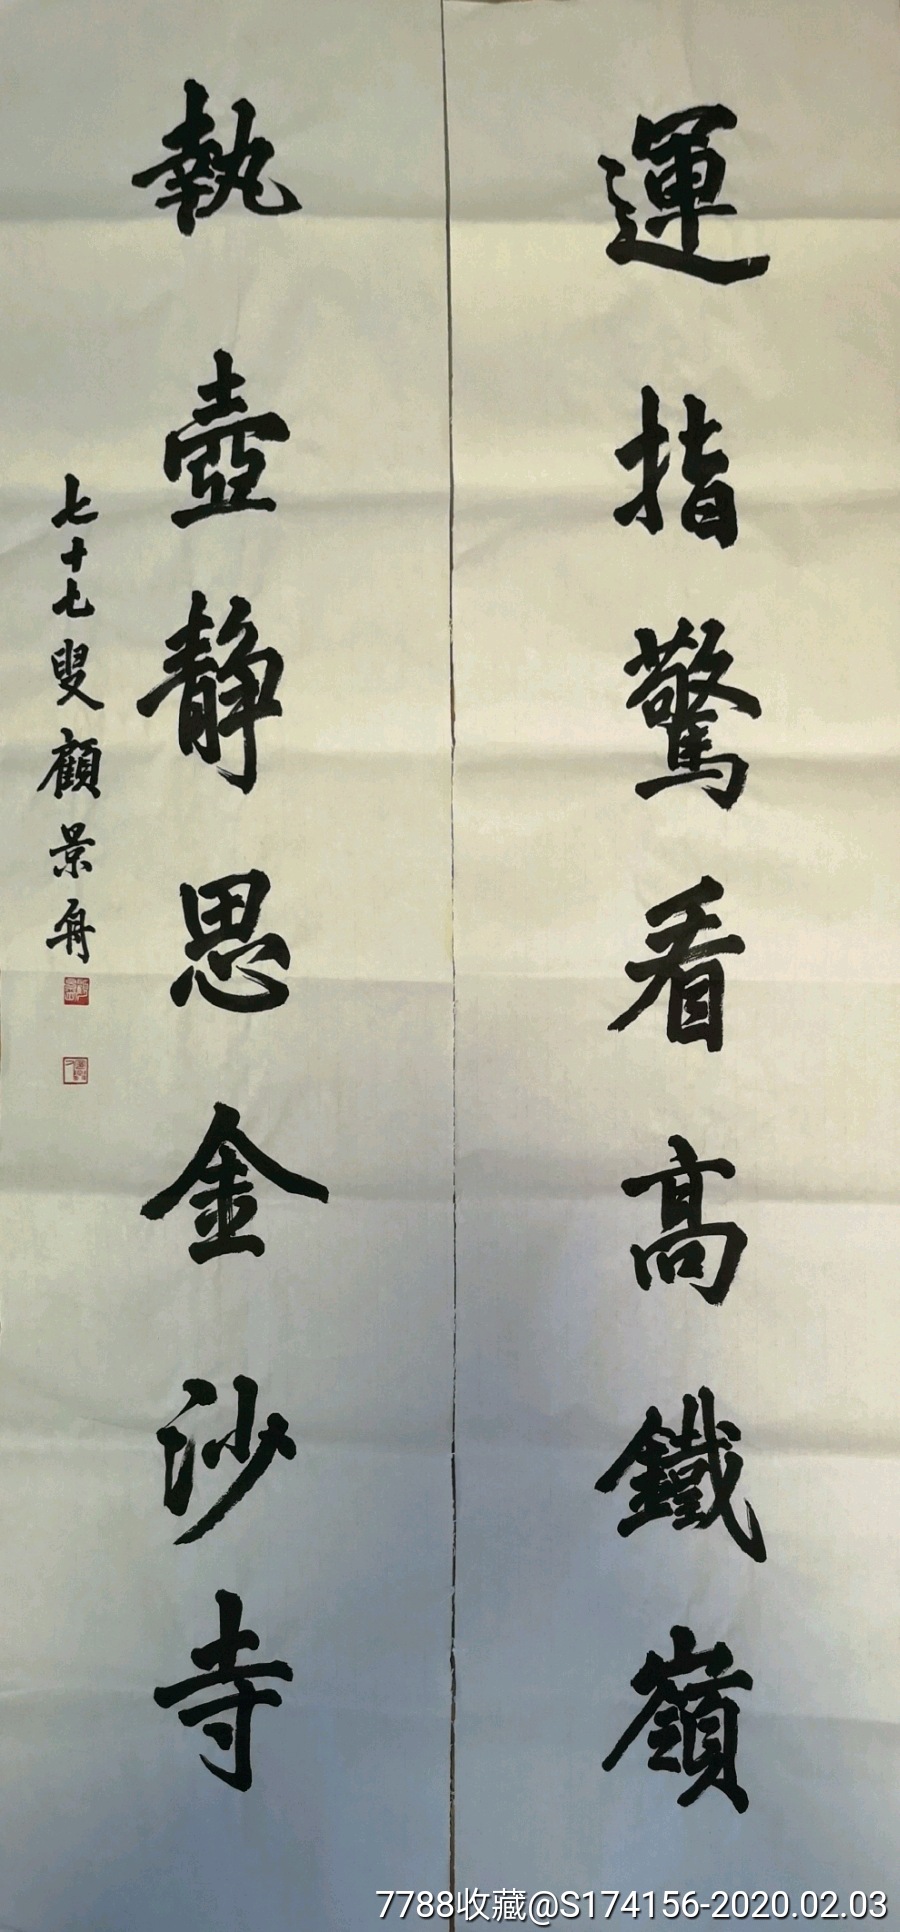 運指驚看高鐵嶺
執壺靜思金沙寺
七十七叟顧景舟
7788收藏@S174156-2020.02.03